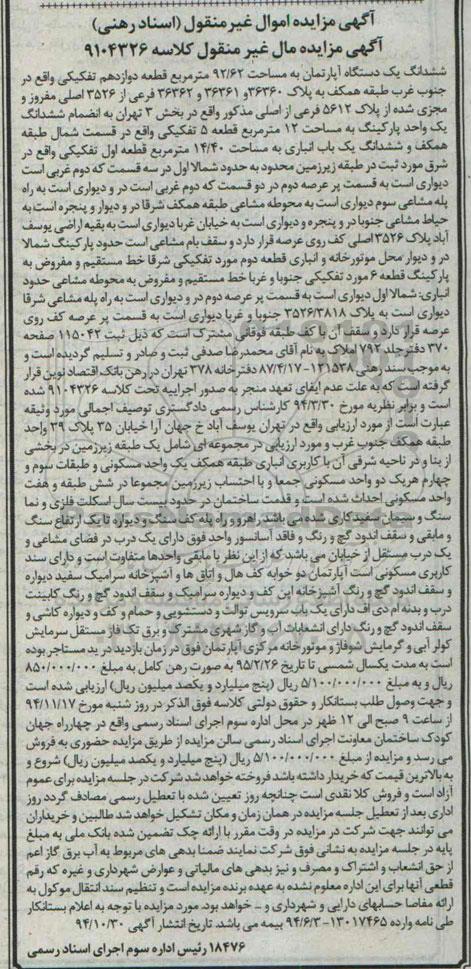 آگهی مزایده اموال غیرمنقول (اسناد رهنی)
آگهی مزایده مال غیر منقول کلاسه ۹۱۰۴۳۲۶
ششدانگ یک دستگاه آپارتمان به مساحت ۹۲/۶۲ مترمربع قطعه دوازدهم تفکیکی واقع در
جنوب غرب طبقه همکف به پلاک ۳۶۳۶۰و ۳۶۳۶۱ و ۳۶۳۶۲ فرعی از ۳۵۲۶ اصلی مفروز و
مجزی شده از پلاک ۵۶۱۲ فرعی از اصلی مذکور واقع در بخش ۳ تهران به انضمام ششدانگ
یک واحد پارکینگ به مساحت ۱۲ مترمربع قطعه ۵ تفکیکی واقع در قسمت شمال طبقه
همکف و ششدانگ یک باب انباری به مساحت ۱۴/۴۰ مترمربع قطعه اول تفکیکی واقع در
شرق مورد ثبت در طبقه زیرزمین محدود به حدود شمالا اول در سه قسمت که دوم غربی است
دیواری است به قسمت پر عرصه دوم در دو قسمت که دوم غربی است در و دیواری است به راه
پله مشاعی سوم دیواری است به محوطه مشاعی طبقه همکف شرقا در و دیوار و پنجره است به
حیاط مشاعی جنوبا در و پنجره و دیواری است به خیابان غربا دیواری است به بقیه اراضی یوسف
آباد پلاک ۳۵۲۶ اصلی کف روی عرصه قرار دارد و سقف بام مشاعی است حدود پارکینگ شمالا
در و دیوار محل موتورخانه و انباری قطعه دوم مورد تفکیکی شرقا خط مستقیم و مفروض به
پارکینگ قطعه ۶ مورد تفکیکی جنوبا و غربا خط مستقیم و مفروض به محوطه مشاعی حدود
انباری: شمالا اول دیواری است به قسمت پر عرصه دوم در و دیواری است به راه پله مشاعی شرقا
دیواری است به پلاک ۳۵۲۶/۳۸۱۸ جنوبا و غربا دیواری است به قسمت پر عرصه کف روی
عرصه قرار دارد و سقف آن با کف طبقه فوقانی مشترک است که ذیل ثبت ۱۱۵۰۴۲ صفحه
۳۷۰ دفترجلد ۷۹۲ املاک به نام آقای محمدرضا صدفی ثبت و صادر و تسلیم گردیده است و
به موجب سند رهنی ۱۳۱۵۳۸-۸۷/۴/۱۷ دفترخانه ۳۷۸ تهران در رهن بانک اقتصاد نوین قرار
گرفته است که به علت عدم ایفای تعهد منجر به صدور اجراییه تحت کلاسه ۹۱۰۴۳۲۶ شده
است و برابر نظریه مورخ ۹۴/۳/۳۰ کارشناس رسمی دادگستری توصیف اجمالی مورد وثیقه
عبارت است از مورد ارزیابی واقع در تهران یوسف آباد خ جهان آرا خیابان ۳۵ پلاک ۳۹ واحد
طبقه همکف جنوب غرب و مورد ارزیابی در مجموعه ای شامل یک طبقه زیرزمین در بخشی
از بنا و در ناحیه شرقی آن با کاربری انباری طبقه همکف یک واحد مسکونی و طبقات سوم و
چهارم هریک دو واحد مسکونی جمعا و با احتساب زیرزمین مجموعا در شش طبقه و هفت
واحد مسکونی احداث شده است و قدمت ساختمان در حدود بیست سال اسکلت فلزی و نما
سنگ و سیمان سفیدکاری شده می باشد. راهرو و راه پله کف سنگ و دیواره تا یک ارتفاع سنگ
و مابقی و سقف اندود گچ و رنگ و فاقد آسانسور واحد فوق دارای یک درب در فضای مشاعی و
یک درب مستقل از خیابان می باشد که از این نظر با مابقی واحدها متفاوت است و دارای سند
کاربری مسکونی است آپارتمان دو خوابه کف هال و اتاق ها و آشپزخانه سرامیک سفید دیواره
و سقف اندود گچ و رنگ آشپزخانه اپن کف و دیواره سرامیک و سقف اندود گچ و رنگ کابینت
درب و بدنه ام دی اف دارای یک باب سرویس توالت و دستشویی و حمام و کف و دیواره کاشی و
سقف اندود گچ و رنگ دارای انشعابات آب و گاز شهری مشترک و برق تک فاز مستقل سرمایش
کولر آبی و گرمایش شوفاژ و موتورخانه مرکزی آپارتمان فوق در زمان بازدید در ید مستاجر بوده
است به مدت یکسال شمسی تا تاریخ ۹۵/۲/۲۶ به صورت رهن کامل به مبلغ ۸۵۰/۰۰۰/۰۰۰
ریال و به مبلغ ۵/۱۰۰/۰۰۰/۰۰۰ ریال (پنج میلیارد و یکصد میلیون ریال) ارزیابی شده است
و جهت وصول طلب بستانکار و حقوق دولتی کلاسه فوق الذکر در روز شنبه مورخ ۹۴/۱۱/۱۷
از ساعت ۹ صبح الی ۱۲ ظهر در محل اداره سوم اجرای اسناد رسمی واقع در چهارراه جهان
کودک ساختمان معاونت اجرای اسناد رسمی سالن مزایده از طریق مزایده حضوری به فروش
می رسد و مزایده از مبلغ ۵/۱۰۰/۰۰۰/۰۰۰ ریال (پنج میلیارد و یکصد میلیون ریال) شروع و
به بالاترین قیمت که خریدار داشته باشد فروخته خواهد شد شرکت در جلسه مزایده برای عموم
آزاد است و فروش کلا نقدی است چنانچه روز تعیین شده با تعطیل رسمی مصادف گردد روز
اداری بعد از تعطیل جلسه مزایده در همان زمان و مکان تشکیل خواهد شد طالبین و خریداران
می توانند جهت شرکت در مزایده در وقت مقرر با ارائه چک تضمین شده بانک ملی به مبلغ
پایه در جلسه مزایده به نشانی فوق شرکت نمایند ضمنا بدهی های مربوط به آب برق گاز اعم
از حق انشعاب و اشتراک و مصرف و نیز بدهی های مالیاتی و عوارض شهرداری و غیره که رقم
قطعی آنها برای این اداره معلوم نشده به عهده برنده مزایده است و تنظیم سند انتقال موکول به
ارائه مفاصا حسابهای دارایی و شهرداری و ... خواهد بود. مورد مزایده با توجه به اعلام بستانکار
طی نامه وارده ۱۳۰۱۷۴۶۵-۹۴/۶/۳ بیمه می باشد. تاریخ انتشار آگهی ۹۴/۱۰/۳۰
۱۸۴۷۶ رئیس اداره سوم اجرای اسناد رسمی